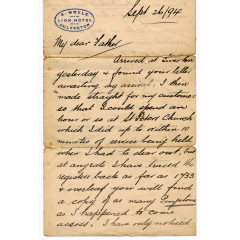 C. WHYLE
LION HOTEL
WOLVERTON
Sept 26/94
My dear Father
Arrived at
yesterday & found your letter
awaiting my arrival. I then
made straight for my customers
so that I could spend an
hour or so at St Peters Church
which I did up to within 10
minutes of service being held
when I had to clear out. but
at any rate I have traced the
register back as far as 1733
& overleaf you will find
a copy of as many
as I happened to come
across. I have only noticed